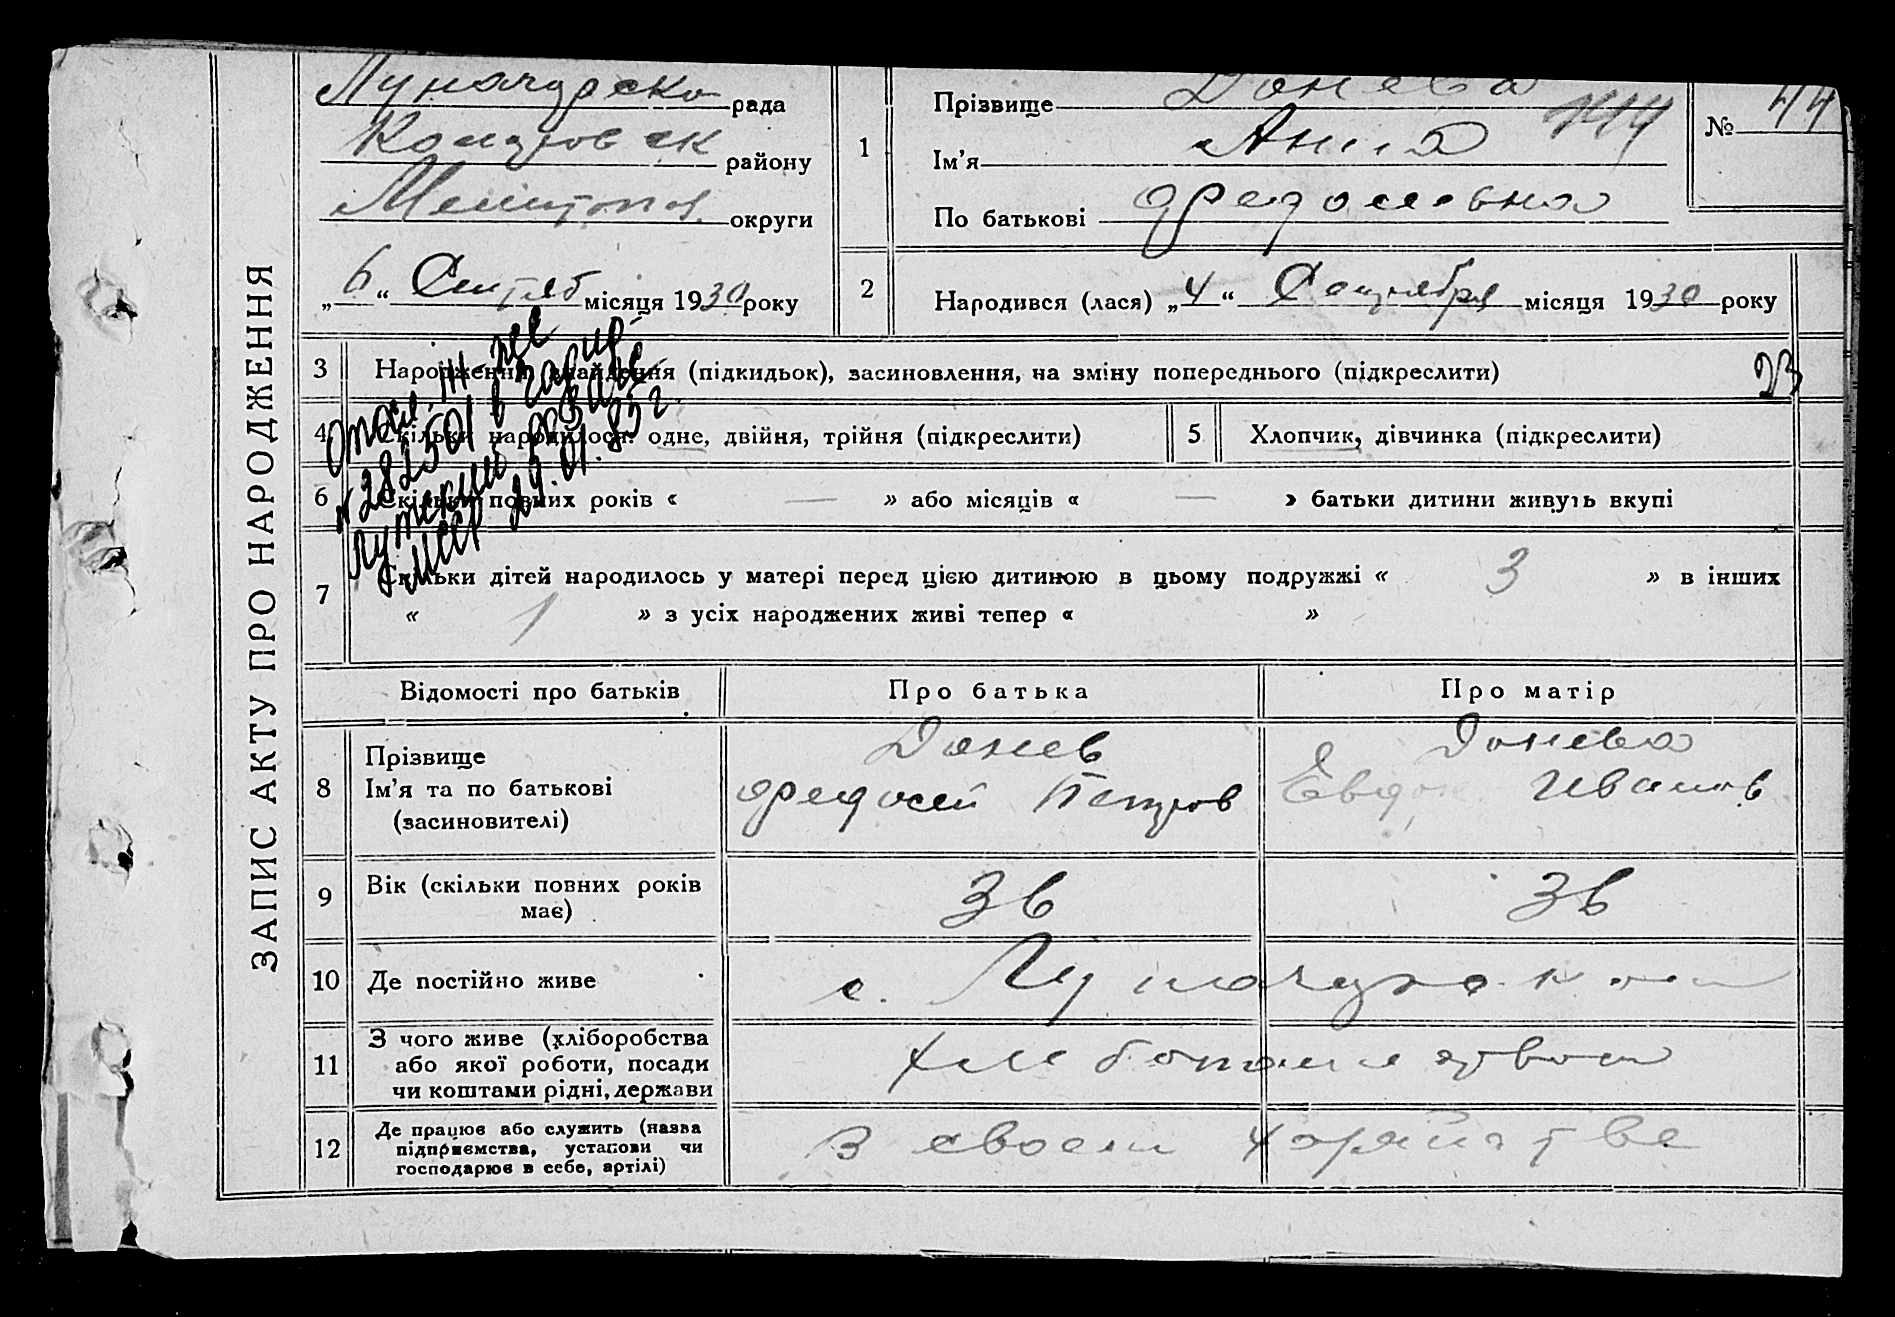 ЗАПИС АКТУ ПРО НАРОДЖЕННЯ
Луначарско рада
району
Мелитопол округи
„6“ Сентяб місяця 1930 року
1
Прізвище Донева
Ім'я Анна 144
По батькові Федосеевна
№ 44
2
Народився (лася) „4“ Сентября місяця 1930 року
3 Народження, знайдення (підкидьок), засиновлення, на зміну попереднього (підкреслити)
4 Скільки народилося: одне, двійня, трійня (підкреслити)
5 Хлопчик, дівчинка (підкреслити)
6 Скільки повних років « — » або місяців « — » батьки дитини живуть вкупі
№ 282501 в
29.01.85 г.
7 Скільки дітей народилось у матері перед цією дитиною в цьому подружжі « 3 » в інших
« 1 » з усіх народжених живі тепер « »
Відомості про батьків Про батька Про матір
8 Прізвище
Ім'я та по батькові
(засиновителі)
Донев
Федосей Петров
Донева
Евдок Иванов
9 Вік (скільки повних років має) 36 36
10 Де постійно живе с. Луначарском
11 З чого живе (хліборобства або якої роботи, посади чи коштами рідні, держави
Хлебопашеством
12 Де працює або служить (назва підприємства, установи чи господарює в себе, артілі)
В своем хозяйстве